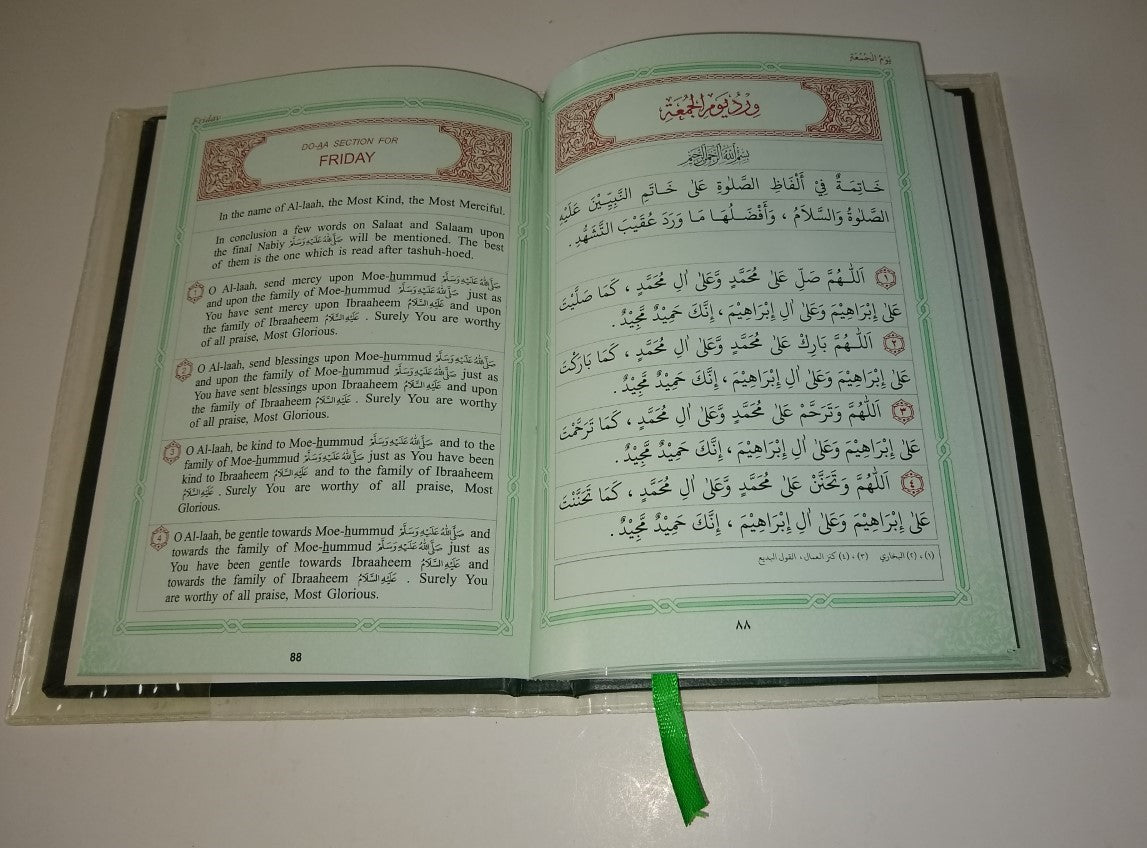 Friday
DO-AA SECTION FOR
FRIDAY
In the name of Al-laah, the Most Kind, the Most Merciful.
In conclusion a few words on Salaat and Salaam upon
the final Nabiy صَلَّى اللهُ عَلَيْهِ وَسَلَّمَ will be mentioned. The best
of them is the one which is read after tashuh-hoed.
1 O Al-laah, send mercy upon Moe-hummud صَلَّى اللهُ عَلَيْهِ وَسَلَّمَ
and upon the family of Moe-hummud صَلَّى اللهُ عَلَيْهِ وَسَلَّمَ just as
You have sent mercy upon Ibraaheem عَلَيْهِ السَّلَامُ and upon
the family of Ibraaheem عَلَيْهِ السَّلَامُ . Surely You are worthy
of all praise, Most Glorious.
2 O Al-laah, send blessings upon Moe-hummud صَلَّى اللهُ عَلَيْهِ وَسَلَّمَ
and upon the family of Moe-hummud صَلَّى اللهُ عَلَيْهِ وَسَلَّمَ just as
You have sent blessings upon Ibraaheem عَلَيْهِ السَّلَامُ and upon
the family of Ibraaheem عَلَيْهِ السَّلَامُ . Surely You are worthy
of all praise, Most Glorious.
3 O Al-laah, be kind to Moe-hummud صَلَّى اللهُ عَلَيْهِ وَسَلَّمَ and to the
family of Moe-hummud صَلَّى اللهُ عَلَيْهِ وَسَلَّمَ just as You have been
kind to Ibraaheem عَلَيْهِ السَّلَامُ and to the family of Ibraaheem
عَلَيْهِ السَّلَامُ . Surely You are worthy of all praise, Most
Glorious.
4 O Al-laah, be gentle towards Moe-hummud صَلَّى اللهُ عَلَيْهِ وَسَلَّمَ and
towards the family of Moe-hummud صَلَّى اللهُ عَلَيْهِ وَسَلَّمَ just as
You have been gentle towards Ibraaheem عَلَيْهِ السَّلَامُ and
towards the family of Ibraaheem عَلَيْهِ السَّلَامُ . Surely You
are worthy of all praise, Most Glorious.
88
يَوْمُ الْجُمُعَة
وِرْدُ يَوْمِ الْجُمُعَةِ
بِسْمِ اللهِ الرَّحْمٰنِ الرَّحِيْمِ
خَاتِمَةٌ فِيْ أَلْفَاظِ الصَّلٰوةِ عَلٰى خَاتَمِ النَّبِيِّيْنَ عَلَيْهِ
الصَّلٰوةُ وَالسَّلَامُ ، وَأَفْضَلُهَا مَا وَرَدَ عُقَيْبَ التَّشَهُّدِ .
١ اَللّٰهُمَّ صَلِّ عَلٰى مُحَمَّدٍ وَّعَلٰى اٰلِ مُحَمَّدٍ ، كَمَا صَلَّيْتَ
عَلٰى إِبْرَاهِيْمَ وَعَلٰى اٰلِ إِبْرَاهِيْمَ ، إِنَّكَ حَمِيْدٌ مَّجِيْدٌ .
٢ اَللّٰهُمَّ بَارِكْ عَلٰى مُحَمَّدٍ وَّعَلٰى اٰلِ مُحَمَّدٍ ، كَمَا بَارَكْتَ
عَلٰى إِبْرَاهِيْمَ وَعَلٰى اٰلِ إِبْرَاهِيْمَ ، إِنَّكَ حَمِيْدٌ مَّجِيْدٌ .
٣ اَللّٰهُمَّ وَتَرَحَّمْ عَلٰى مُحَمَّدٍ وَّعَلٰى اٰلِ مُحَمَّدٍ ، كَمَا تَرَحَّمْتَ
عَلٰى إِبْرَاهِيْمَ وَعَلٰى اٰلِ إِبْرَاهِيْمَ ، إِنَّكَ حَمِيْدٌ مَّجِيْدٌ .
٤ اَللّٰهُمَّ وَتَحَنَّنْ عَلٰى مُحَمَّدٍ وَّعَلٰى اٰلِ مُحَمَّدٍ ، كَمَا تَحَنَّنْتَ
عَلٰى إِبْرَاهِيْمَ وَعَلٰى اٰلِ إِبْرَاهِيْمَ ، إِنَّكَ حَمِيْدٌ مَّجِيْدٌ .
(١) ، (٢) البخاري (٣) ، (٤) كنز العمال ، القول البديع
٨٨